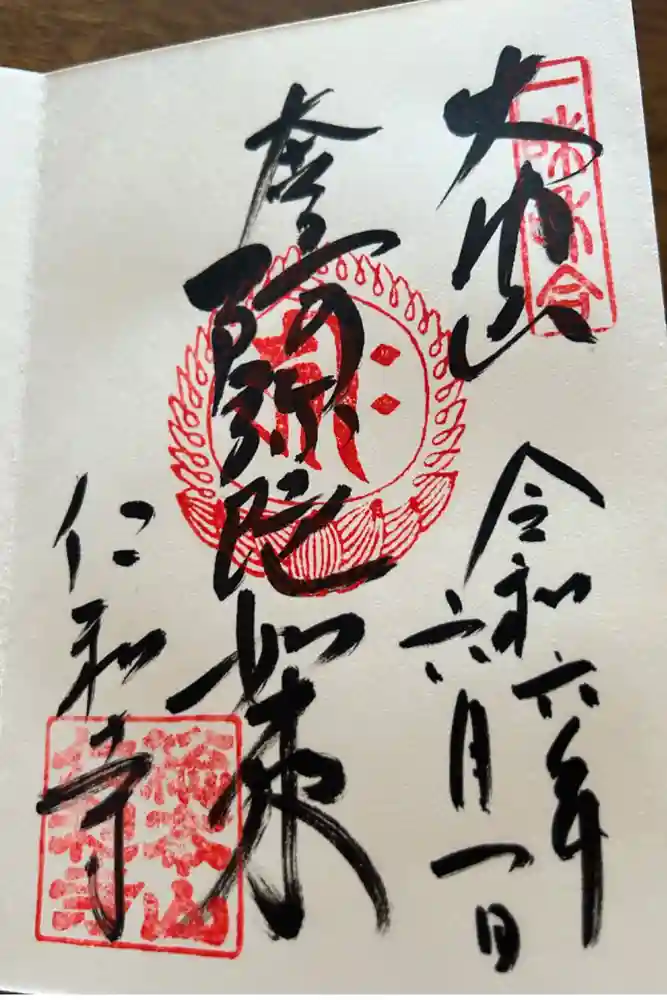 大内山
令和六年
六月一日
阿弥陀如来
仁和寺